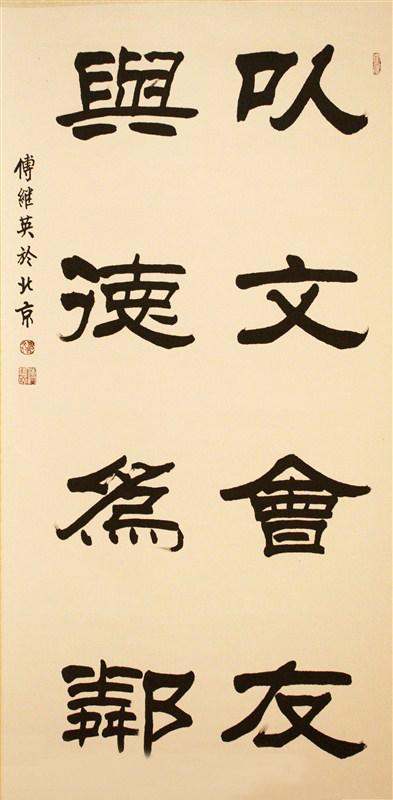 以文會友
與德為鄰
傅維英於北京